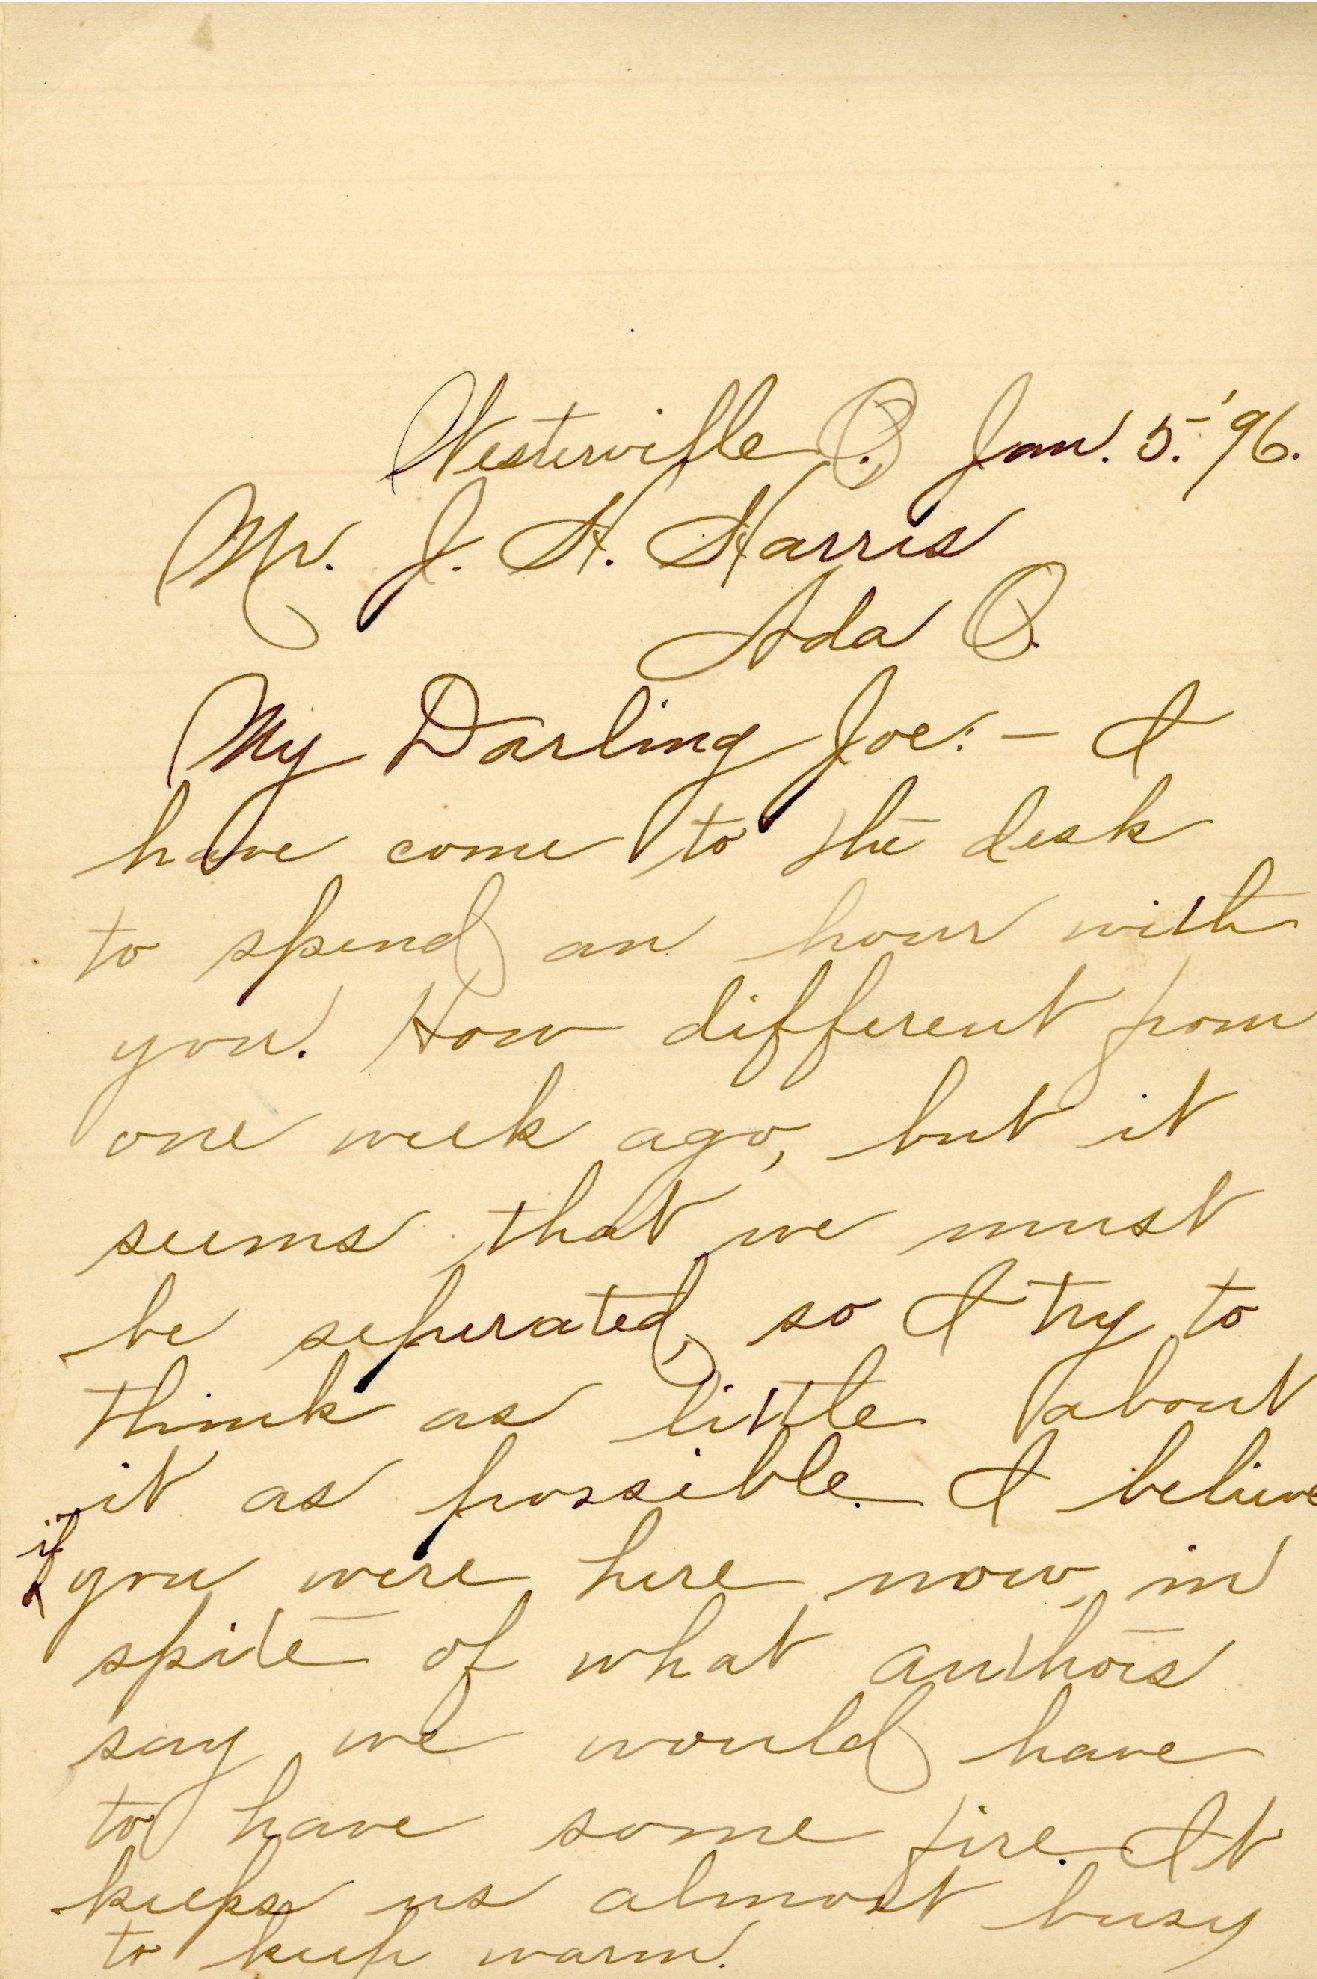 Westerville O. Jan. 5. '96.
Mr. J. H. Harris
Ada O.
My Darling Joe: – I
have come to the desk
to spend an hour with
you. How different from
one week ago, but it
seems that we must
be seperated, so I try to
think as little about
it as possible. I believe
if you were here now, in
spite of what authors
say we would have
to have some fire. It
keeps us almost busy
to keep warm.